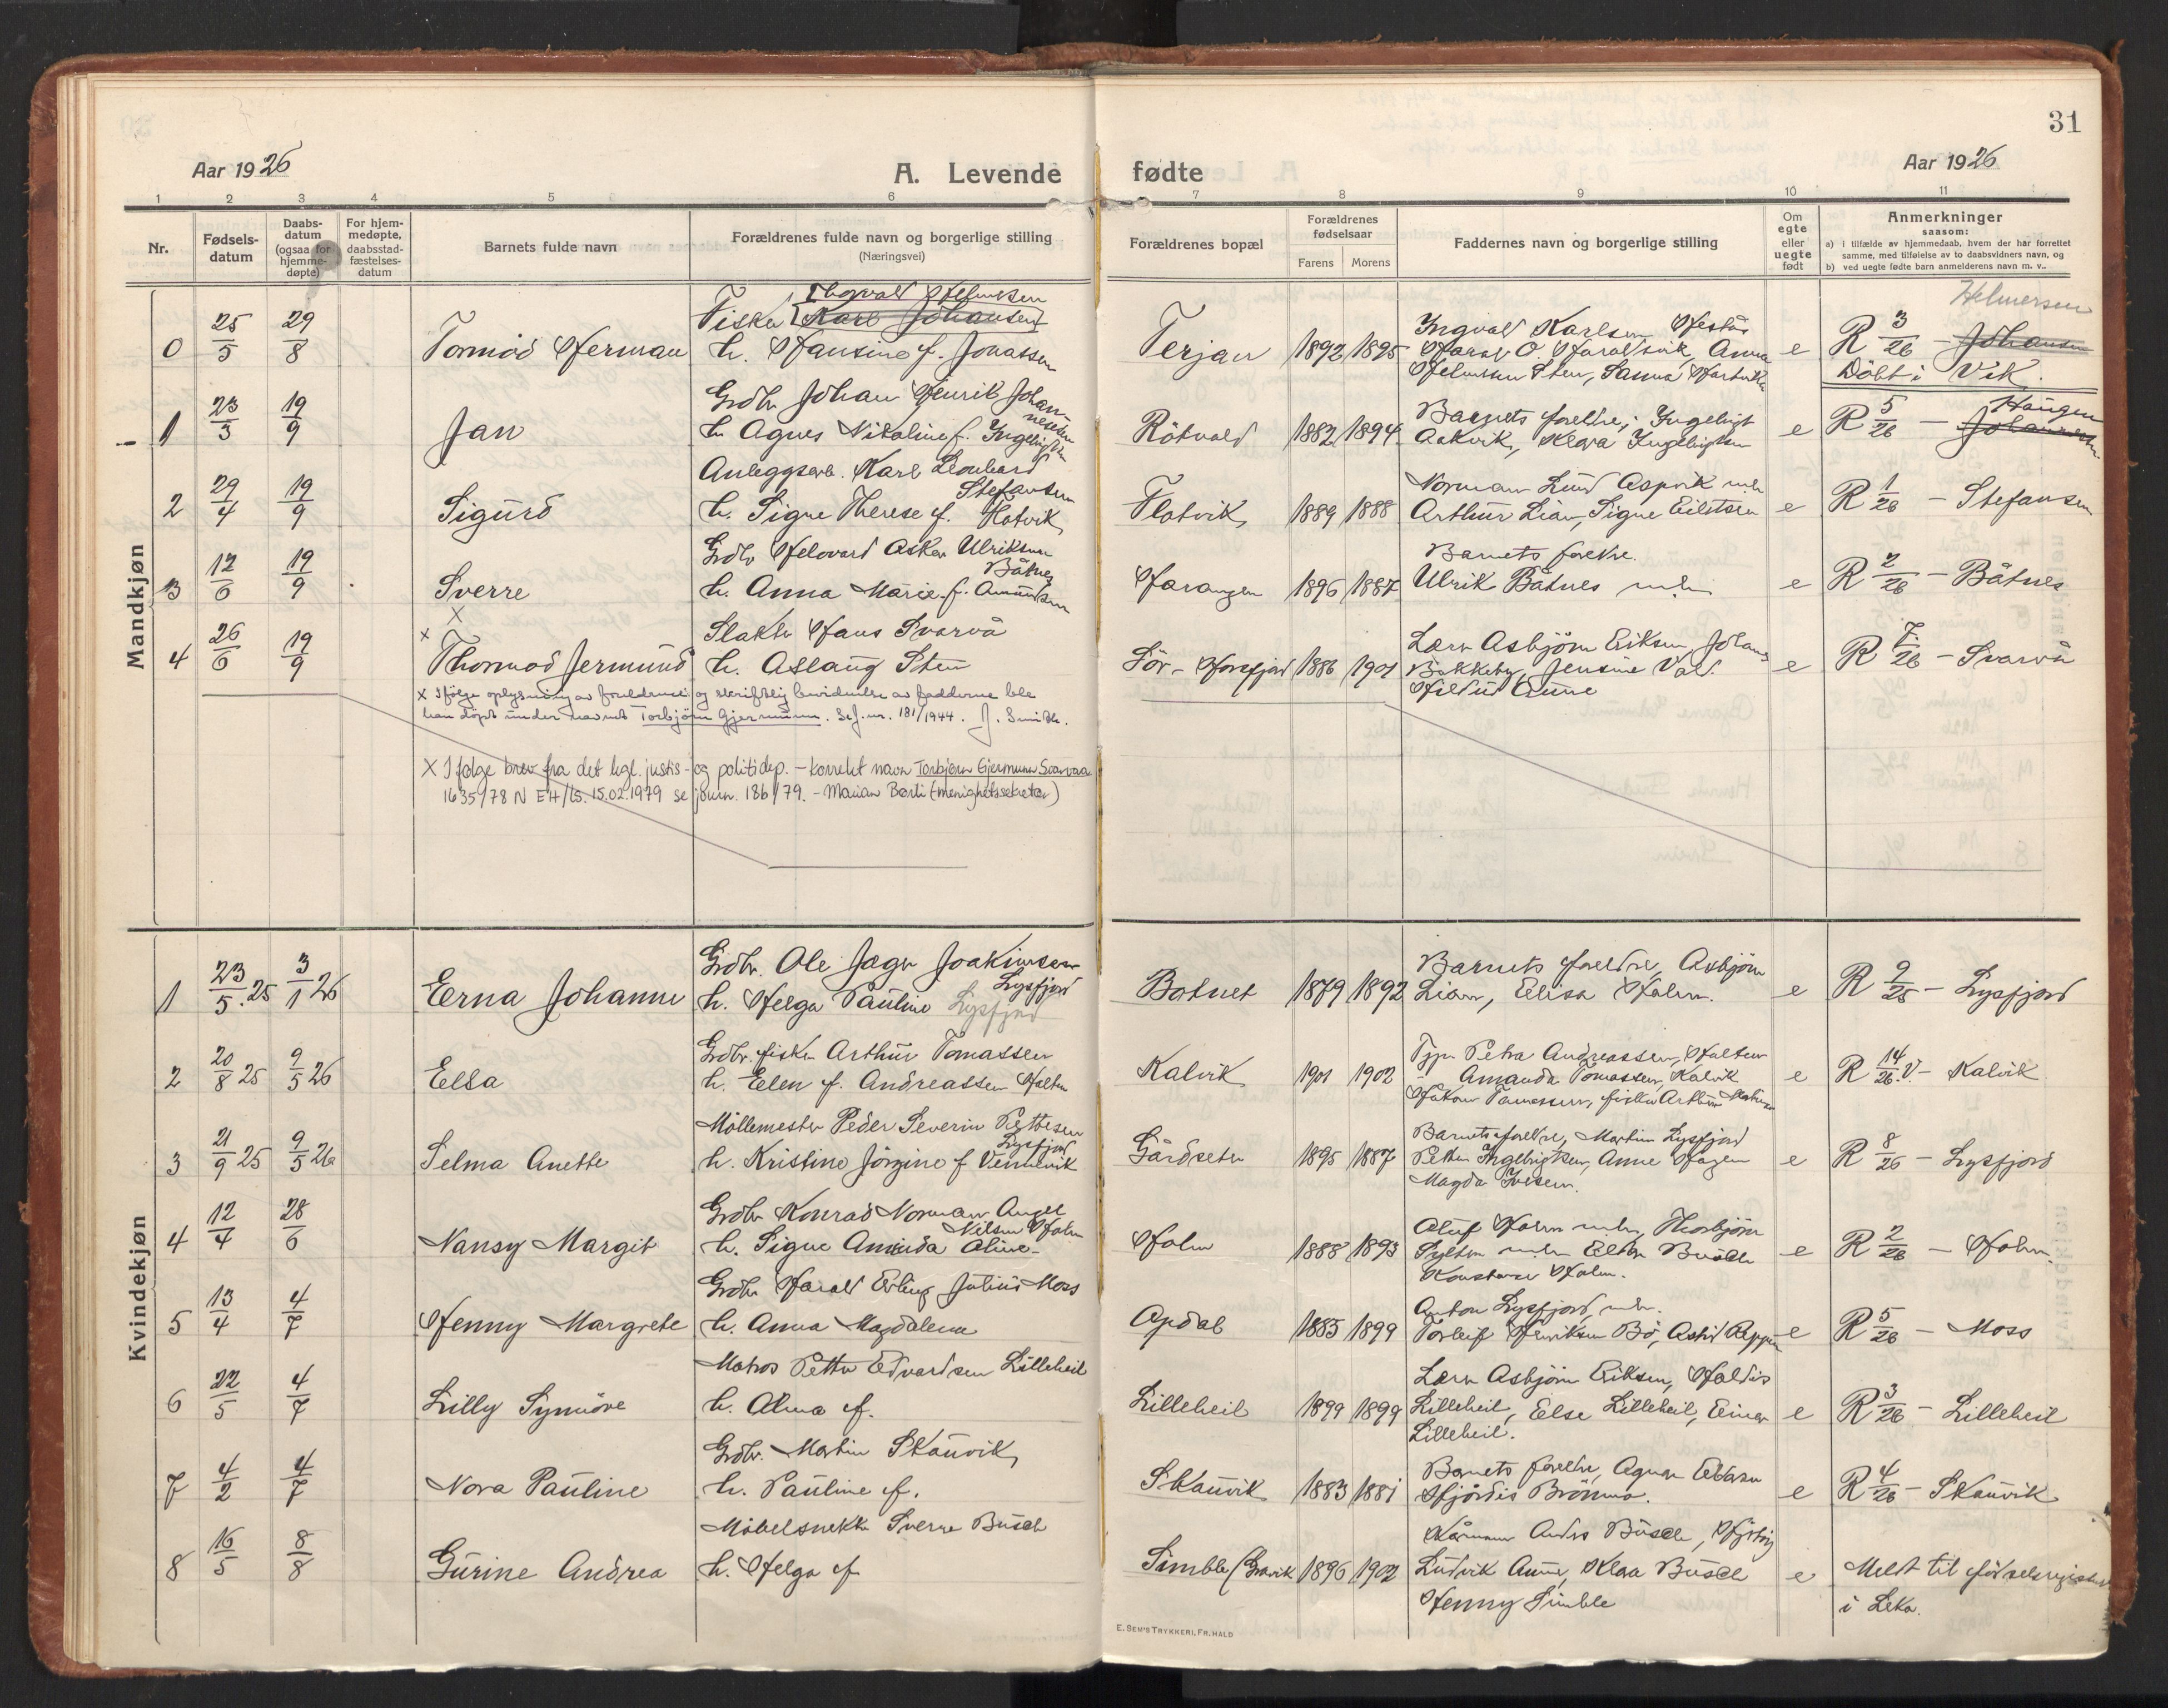 31
Aar 1926
A. Levende fødte
Aar 1926
1 2 3 4 5 6 7 8 9 10 11
Nr.
Fødsels-
datum
Daabs-
datum
(ogsaa for
hjemme-
døpte)
For hjem-
medøpte,
daabsstad-
fæstelses-
datum
Barnets fulde navn
Forældrenes fulde navn og borgerlige stilling
(Næringsvei)
Forældrenes bopæl
Forældrenes
fødselsaar
Farens Morens
Faddernes navn og borgerlige stilling
Om
egte
eller
uegte
født
Anmerkninger
saasom:
a) i tilfælde av hjemmedaab, hvem der har forrettet
samme, med tilføielse av to daabsvidners navn, og
b) ved uegte fødte barn anmelderens navn m. v..
Mandkjøn
0 25/5 29/8 Tormod Herman
Thorvald Helmersen
Fisker Karl Johansen
h. Hansine f. Jonassen
Terjan 1892 1895
Ingvald Karlsen Hestås
Harald O. Haraldsvik, Anna
Helmersen Sten, Sanna
e R 3/26 - Johansen
Helmersen
Döbt i Vik.
1 23/3 19/9 Jan
Grdbr Johan Henrik Johan-
nessen
h. Agnes Nikoline f. Ingebrigtsen
Rötvold 1882 1894
Barnets foreldre; Ingebrigt
Aakvik, Klara Ingebrigtsen
e R 5/26 - Johannessen
Haugen
2 29/4 19/9 Sigurd
Anleggsarb. Karl Leonhard
Stefansen
h. Signe Therese f. Flotvik
Flotvik 1889 1888
Norman Lund Aspvik m.h.
Arthur Lian, Signe Eilertsen
e R 1/26 - Stefansen
3 12/6 19/9 Sverre
Grdbr Helovard Asker Ulriksen
Båtnes
h. Anna Marie f. Amundsen
Harangen 1896 1887
Barnets foreldre.
Ulrik Båtnes m.h.
e R 2/26 - Båtnes
x
4 26/6 19/9 x Thormod Jermund
Slakter Hans Svarvå
h. Aslaug Sten
Sör-Horsfjord 1886 1901
Lærer Asbjörn Eriksen, Johans
Bakkeby, Jensine Val.
Hildur Aune
e R 7/26 - Svarvå
x Ifölge oplysning av foreldrene og skriftlig bevidnelse av fadderne ble
han döpt under navnet Torbjörn Gjermunn. Se J. nr. 181/1944. J. Smith.
X Ifølge brev fra det kgl. justis- og politidep. - korrekt navn Torbjørn Gjermunn Svarvaa
1635/78 N EH/LS. 15.02.1979 se journ. 186/79. - Marian Barli (menighetssekretær)
Kvindekjøn
1 23/5.25 3/1 26 Erna Johanne
Grdbr. Ole Jæger Joakimsen
Lysfjord
h. Helga Pauline Lysfjord
Botnet 1879 1892
Barnets foreldre, Asbjörn
Lian, Elisa Holm.
e R 9/25 - Lysfjord
2 20/8 25 9/5 26 Elsa
Grdbr. fisker Arthur Tomassen
h. Elen f. Andreassen
Kalvik 1901 1902
Tjpn Petra Andreassen,
Amanda Tomassen, Kalvik
Håkon Tomassen, fisker Arthur
e R 14/26.V. - Kalvik.
3 21/9 25 9/5 26 Selma Anette
Möllemester Peder Severin Pettersen
Lysfjord
h. Kristine Jörgine f Vennevik
Gårdseter 1895 1887
Barnets foreldre, Martin Lysfjord
Petter Ingebrigtsen, Anne Hagen
Magda Iversen.
e R 8/26 - Lysfjord
4 12/4 28/6 Nansy Margit
Grdbr Konrad Norman Angel
Nilsen Holm
h. Signe Aminda Oline
Holm 1888 1893
Oluf Holm m.h., Thorbjörn
Sylten m.h. Ellen Busch
Konstanse Holm.
e R 2/26 - Holm.
5 13/4 4/7 Henny Margrete
Grdbr Harald Erling Julius Moss
h. Anna Magdalena
Opdal 1885 1899
Anton Lysfjord, m.h.
Torleif Henriksen Bö, Astrid
e R 5/26 - Moss
6 22/5 4/7 Lilly Synnöve
Matros Petter Edvardsen Lilleheil
h. Alma f.
Lilleheil 1899 1899
Lærer Asbjörn Eriksen, Haldis
Lilleheil, Else Lilleheil, Einar
Lilleheil.
e R 3/26 - Lilleheil
7 4/2 4/7 Nora Pauline
Grdbr. Martin Skauvik
h. Pauline f.
Skauvik 1883 1881
Barnets foreldre, Agnar
Hjördis Brönmo.
e R 4/26 - Skauvik
8 16/5 8/8 Gurine Andrea
Möbelsnekker Sverre Busch
h. Helga f
Simble/Gravik 1896 1902
Anders Busch,
Ludvik Aune, Klara Busch
Henny Simble
e Meldt til födselsregisteret
i Leka.
E. SEM'S TRYKKERI, FR.HALD